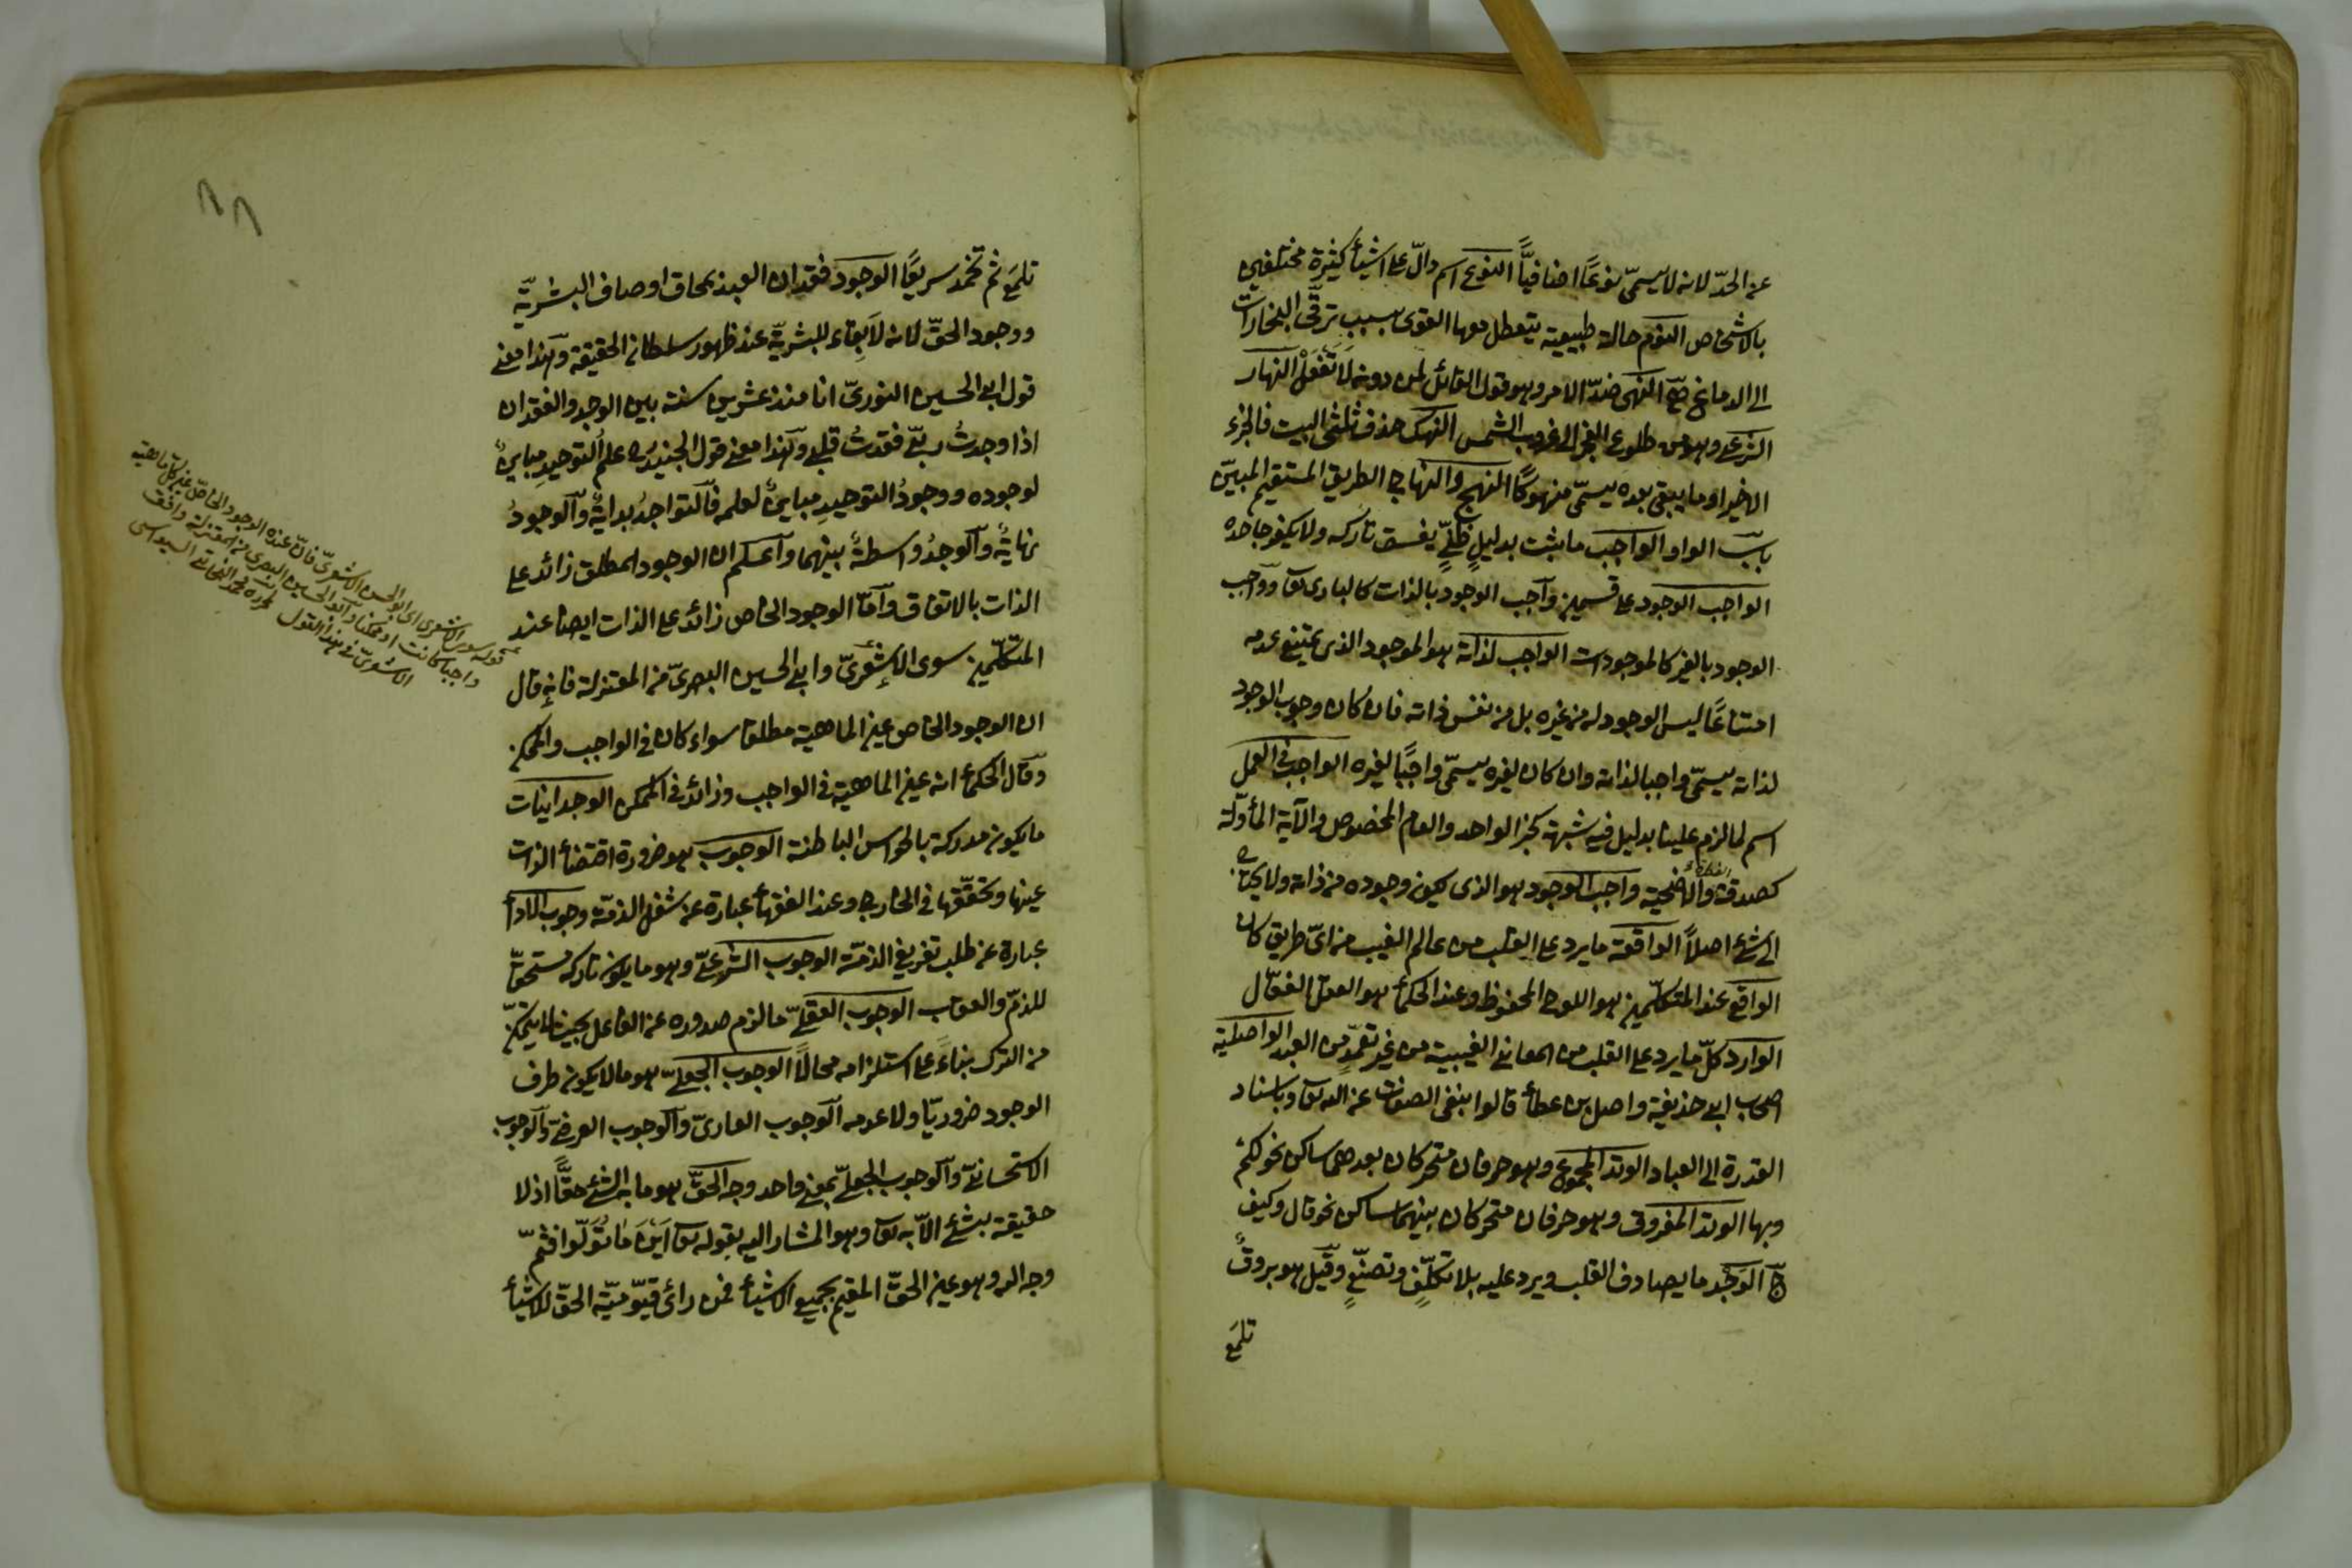 عن الحدّ لانه لا يسمّى نوعًا اضافيًّا النوع اسم دالّ على اشيأ كثيرة مختلفين
بالاشخاص النوم حالة طبيعية يتعطل معها القوى بسبب ترقّى البخارات
الى الدماغ النهى ضدّ الامر وهو قول القائل لمن دونه لا تفعل النهار
الشرعى وهو من طلوع الفجر الى غروب الشمس النهك حذف ثلثى البيت فالجزء
الاخير او ما يبقى بعده يسمّى منهوكًا النهج والنهاج الطريق المستقيم المبيّن
باب الواو الواجب ما يثبت بدليلٍ ظنّىّ يفسق تاركه ولا يكفر جاحده
الواجب الوجود على قسمين واجب الوجود بالذات كالبارى تع وواجب
الوجود بالغير كالموجودات الواجب لذاته هو الموجود الذى يمتنع عدمه
امتناعًا ليس الوجود له من غيره بل من نفس ذاته فان كان وجوب الوجود
لذاته يسمّى واجبا لذاته وان كان لغيره يسمّى واجبًا لغيره الواجب فى العمل
اسم لما لزم علينا بدليل فيه شبهة كخبر الواحد والعام المخصوص والآية المأوّلة
كصدقة الفطر والاضحية واجب الوجود هو الذى يكون وجوده من ذاته ولا يحتاج
الى شئ اصلاً الواقعة ما يرد على القلب من عالم الغيب من اىّ طريق كان
الواقع عند المتكلّمين هو اللوح المحفوظ وعند الحكمأ هو العقل الفعّال
الوارد كلّ ما يرد على القلب من المعانى الغيبية من غير تعمّدٍ من العبد الواصلية
اصحاب ابى حذيفة واصل بن عطأ قالوا بنفى الصفات عن الله تع وباسناد
القدرة الى العباد الوتد المجموع وهو حرفان متحركان بعدهما ساكن نحو لكم
وبها الوتد المفروق وهو حرفان متحركان بينهما ساكن نحو قال وكيف
الوَجْد ما يصادف القلب ويرد عليه بلا تكلّفٍ وتصنّعٍ وقيل هو بروقٌ
تلمَع
تلمَع ثم تخمد سريعًا الوجود فقدان العبد بمحاق اوصاف البشريّة
ووجود الحقّ لانه لا بقاء للبشريّة عند ظهور سلطان الحقيقة وهذا معنى
قول ابى الحسين النورىّ انا منذ عشرين سنة بين الوجد والفقدان
اذا وجدتُ ربّى فقدتُ قلبى وهذا معنى قول الجنيد علم التوحيدِ مباينٌ
لوجوده ووجودُ التوحيدِ مباينٌ لعلمه فالتواجدُ بدايةٌ والوجودُ
نهايةٌ والوجدُ واسطةٌ بينهما واعلم ان الوجود المطلق زائد على
الذات بالاتفاق وامّا الوجود الخاص زائد على الذات ايضا عند
المتكلّمين سوى الاشعرىّ وابى الحسين البصرىّ من المعتزلة فانه قال
ان الوجود الخاص عين الماهية مطلقا سواء كان فى الواجب والممكن
وقال الحكمأ انه عين الماهية فى الواجب وزائد فى الممكن الوجدانيات
ما يكون مدركة بالحواس الباطنة الوجوب هو ضرورة اقتضأ الذات
عينها وتحقّقها فى الخارج وعند الفقهأ عبارة عن شغل الذمّة وجوب الادأ
عبارة عن طلب تفريغ الذمّة الوجوب الشرعىّ وهو ما يكون تاركه مستحقّا
للذمّ والعقاب الوجوب العقلىّ ما لزم صدوره عن الفاعل بحيث لا يتمكّن
من الترك بناءً على استلزامه محالًا الوجوب الجعلىّ هو ما لا يكون طرف
الوجود ضروريّا ولا عدمه الوجوب العادىّ والوجوب العرضىّ والوجوب
الاستحسانىّ والوجوب الجعلىّ بمعنى واحد وجه الحقّ هو ما به الشئ حقًّا اذ لا
حقيقة بشئ الّا به تع وهو المشار اليه بقوله تع اَيْنَ مَا تُوَلّوا فثمّ
وجه الله وهو عين الحقّ المقيم بجميع الاشيأ فمن رأى قيّوميّة الحقّ للاشيأ
قوله سوى الاشعرى اى ابو الحسن الاشعرىّ فانّ عنده الوجود الخاصّ عين كل ماهية
واجبا كانت او ممكنا وابو الحسين البصرى من المعتزلة وافق
الاشعرىّ فى هذا القول